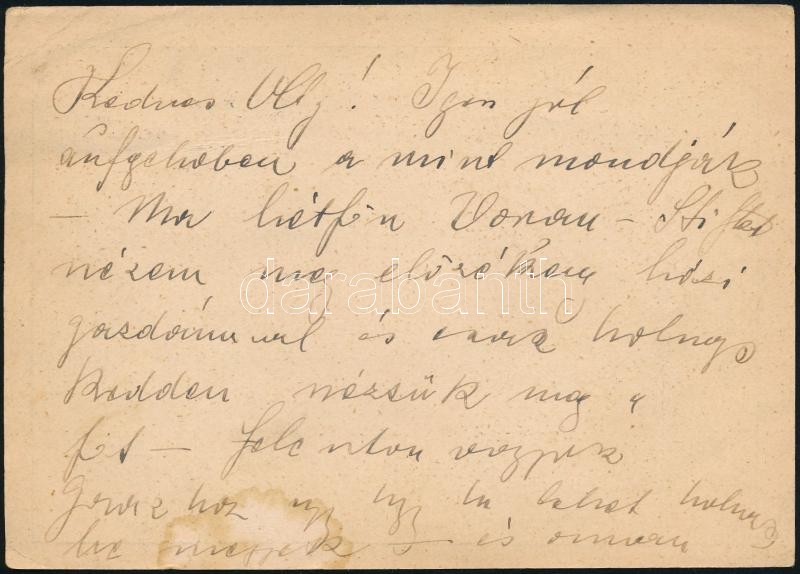 Kedves Olly! Igen jól
aufgehoben a mint mondják
— Ma hétfőn Vorau – Stiftet
nézem meg előzékeny házi
gazdámmal és csak holnap
kedden nézsük meg a
— Fele uton vagyok
Grazhoz úgy hogy ha lehet holnap
be megyek — és onnan
darabanth